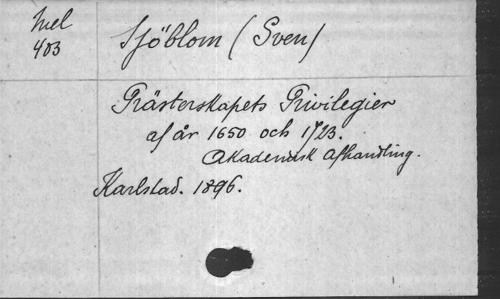 403
Sjöblom (Sven)
Prästerskapets Privilegier
af år 1650 och 1723.
Akademisk Afhandling.
Karlstad. 1896.